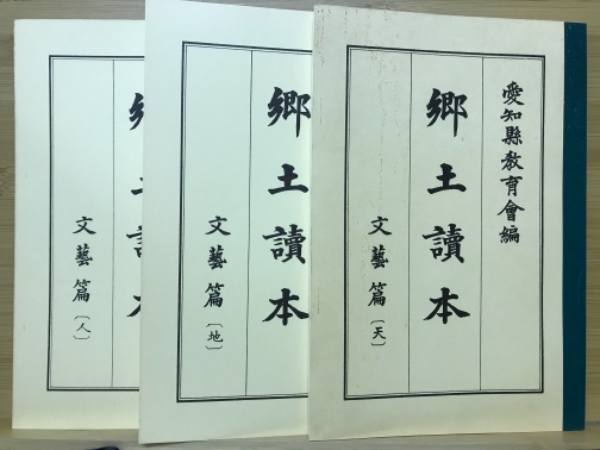 愛知縣教育會編
鄉土讀本
文藝篇〔天〕
鄉土讀本
文藝篇〔地〕
文藝篇〔人〕